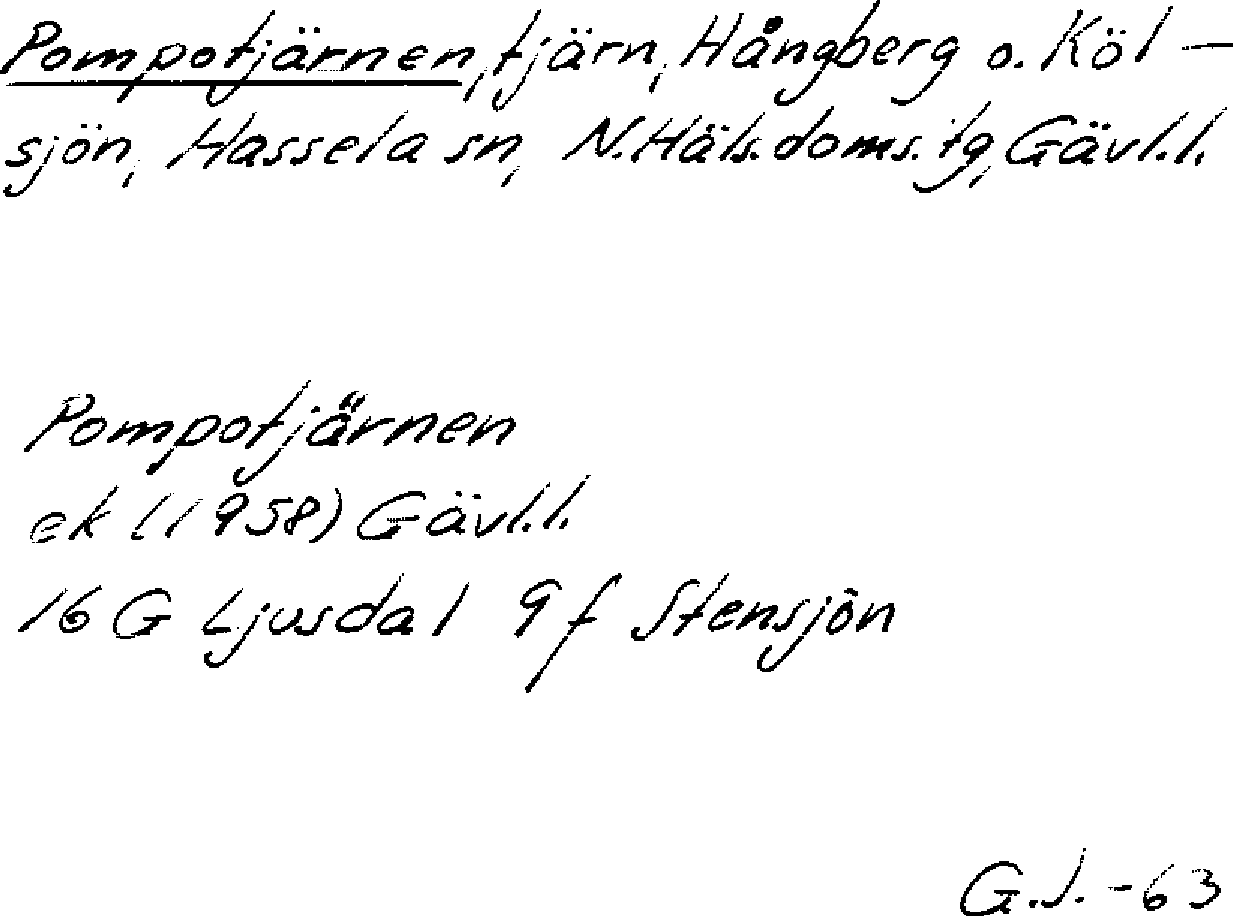 Pompotjärnen, tjärn, Hångberg o. Köl-
sjön, Hassela sn, N. Häls. doms. tg, Gävl. l.
Pompotjärnen
ek (1958) Gävl. l.
16 G Ljusdal 9 f Stensjön
G.J. -63